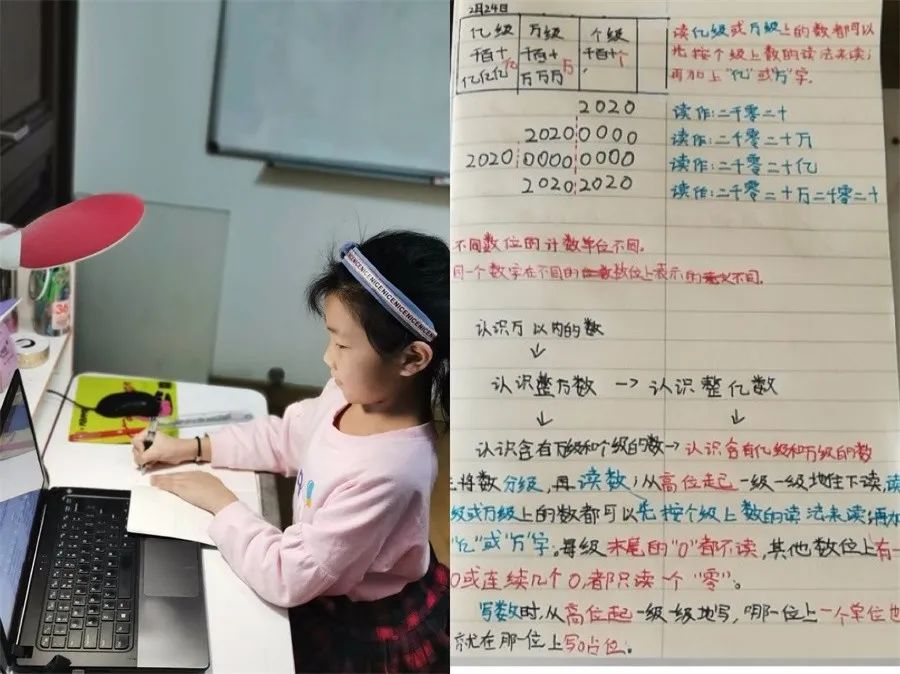 NICENICENICENICENICENICE
2月24日
亿级 万级 个级
千百十亿 千百十万 千百十个
亿亿亿 万万万
读亿级或万级上的数都可以
先按个级上数的读法来读,
再加上"亿"或"万"字。
2020 读作:二千零二十
20200000 读作:二千零二十万
202000000000 读作:二千零二十亿
20202020 读作:二千零二十万二千零二十
不同数位的计数单位不同。
同一个数字在不同的数位上表示的意义不同。
认识万以内的数
认识整万数 → 认识整亿数
认识含有万级和个级的数→认识含有亿级和万级的数
将数分级,再读数,从高位起一级一级地往下读,读
级或万级上的数都可以先按个级上数的读法来读,再加
"亿"或"万"字。每级末尾的"0"都不读,其他数位上有一
0或连续几个0,都只读一个"零"。
写数时,从高位起一级一级地写,哪一位上一个单位也
就在那一位上写0占位。